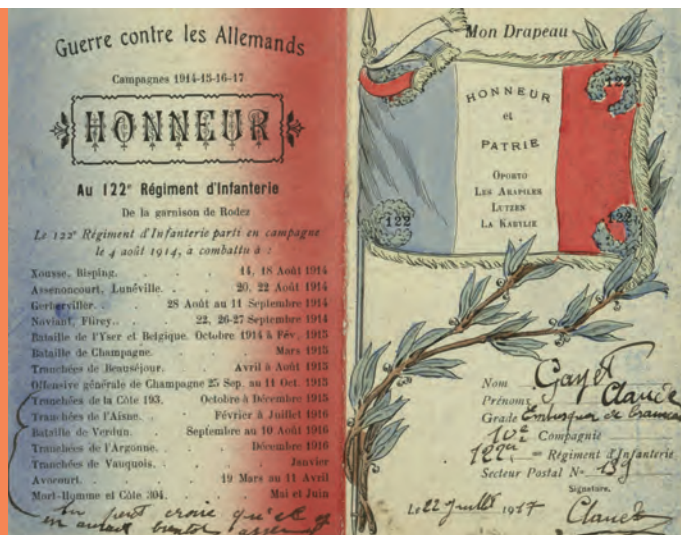 Guerre contre les Allemands
Campagnes 1914-15-16-17
HONNEUR
Au 122e Régiment d'Infanterie
De la garnison de Rodez
Le 122e Régiment d'Infanterie parti en campagne
le 4 août 1914, a combattu à :
Xousse, Bisping. . . . 14, 18 Août 1914
Assenoncourt, Lunéville. . . 20, 22 Août 1914
Gerberviller. . 28 Août au 11 Septembre 1914
Noviant, Flirey. . . 22, 26-27 Septembre 1914
Bataille de l'Yser et Belgique. Octobre 1914 à Fév. 1915
Bataille de Champagne. . . Mars 1915
Tranchées de Beauséjour. . Avril à Août 1915
Offensive générale de Champagne 25 Sep. au 11 Oct. 1915
Tranchées de la Côte 193. Octobre à Décembre 1915
Tranchées de l'Aisne. . Février à Juillet 1916
Bataille de Verdun. . Septembre au 10 Août 1916
Tranchées de l'Argonne. . . Décembre 1916
Tranchées de Vauquois. . . . Janvier
Avocourt. . . . 19 Mars au 11 Avril
Mort-Homme et Côte 304. . . Mai et Juin
on peut croire qu'elle
en aurait bientôt
Mon Drapeau
122
HONNEUR
et
PATRIE
OPORTO
LES ARAPILES
LUTZEN
LA KABYLIE
122
122
Nom Gayet
Prénoms Claude
Grade Embusqué de
10e Compagnie
122e Régiment d'Infanterie
Secteur Postal No 139
Signature.
Le 22 Juillet 1917